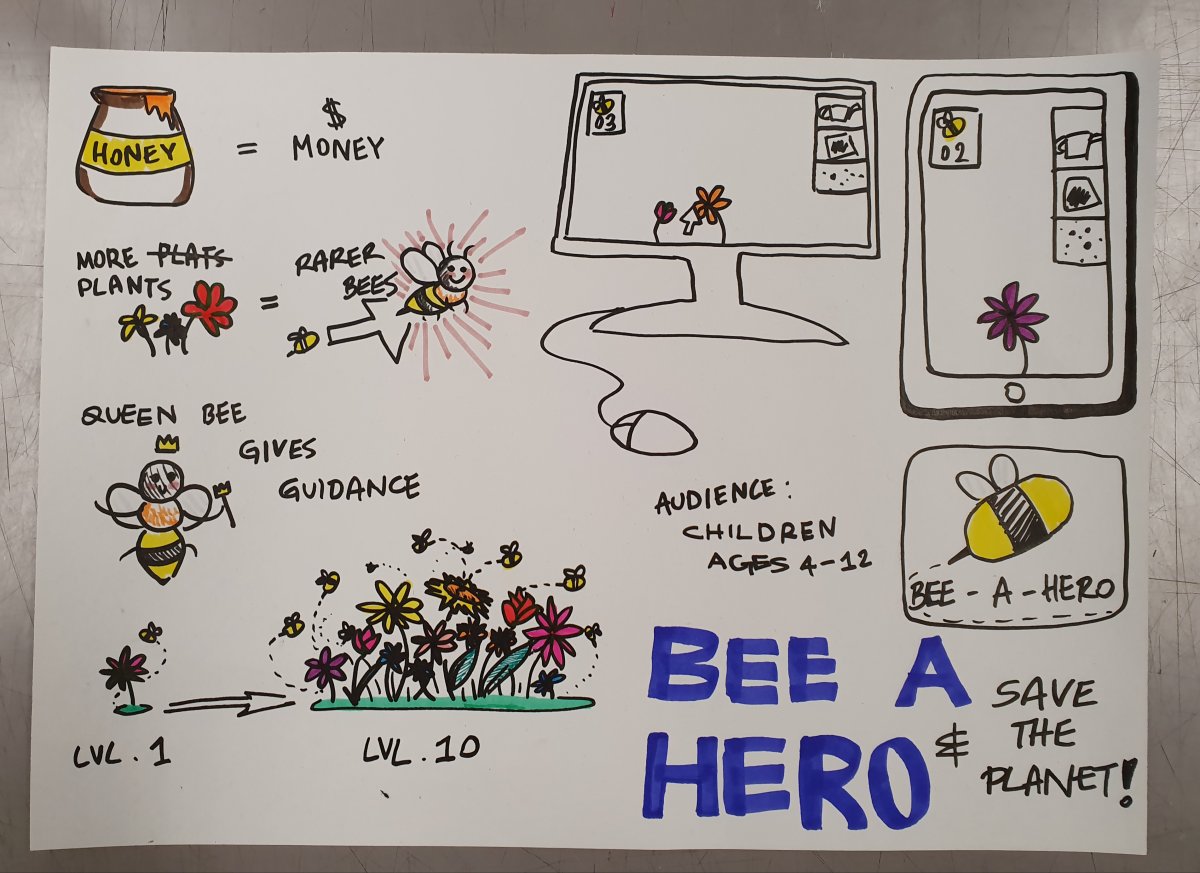 HONEY
=
$
MONEY
MORE PLATS
PLANTS
=
RARER
BEES
QUEEN BEE
GIVES
GUIDANCE
LVL. 1
LVL. 10
03
02
AUDIENCE:
CHILDREN
AGES 4-12
BEE-A-HERO
BEE A
HERO
& SAVE
THE
PLANET!